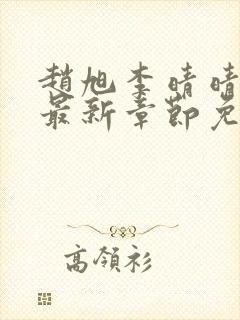 趙旭李晴晴
最新章節免
高領衫